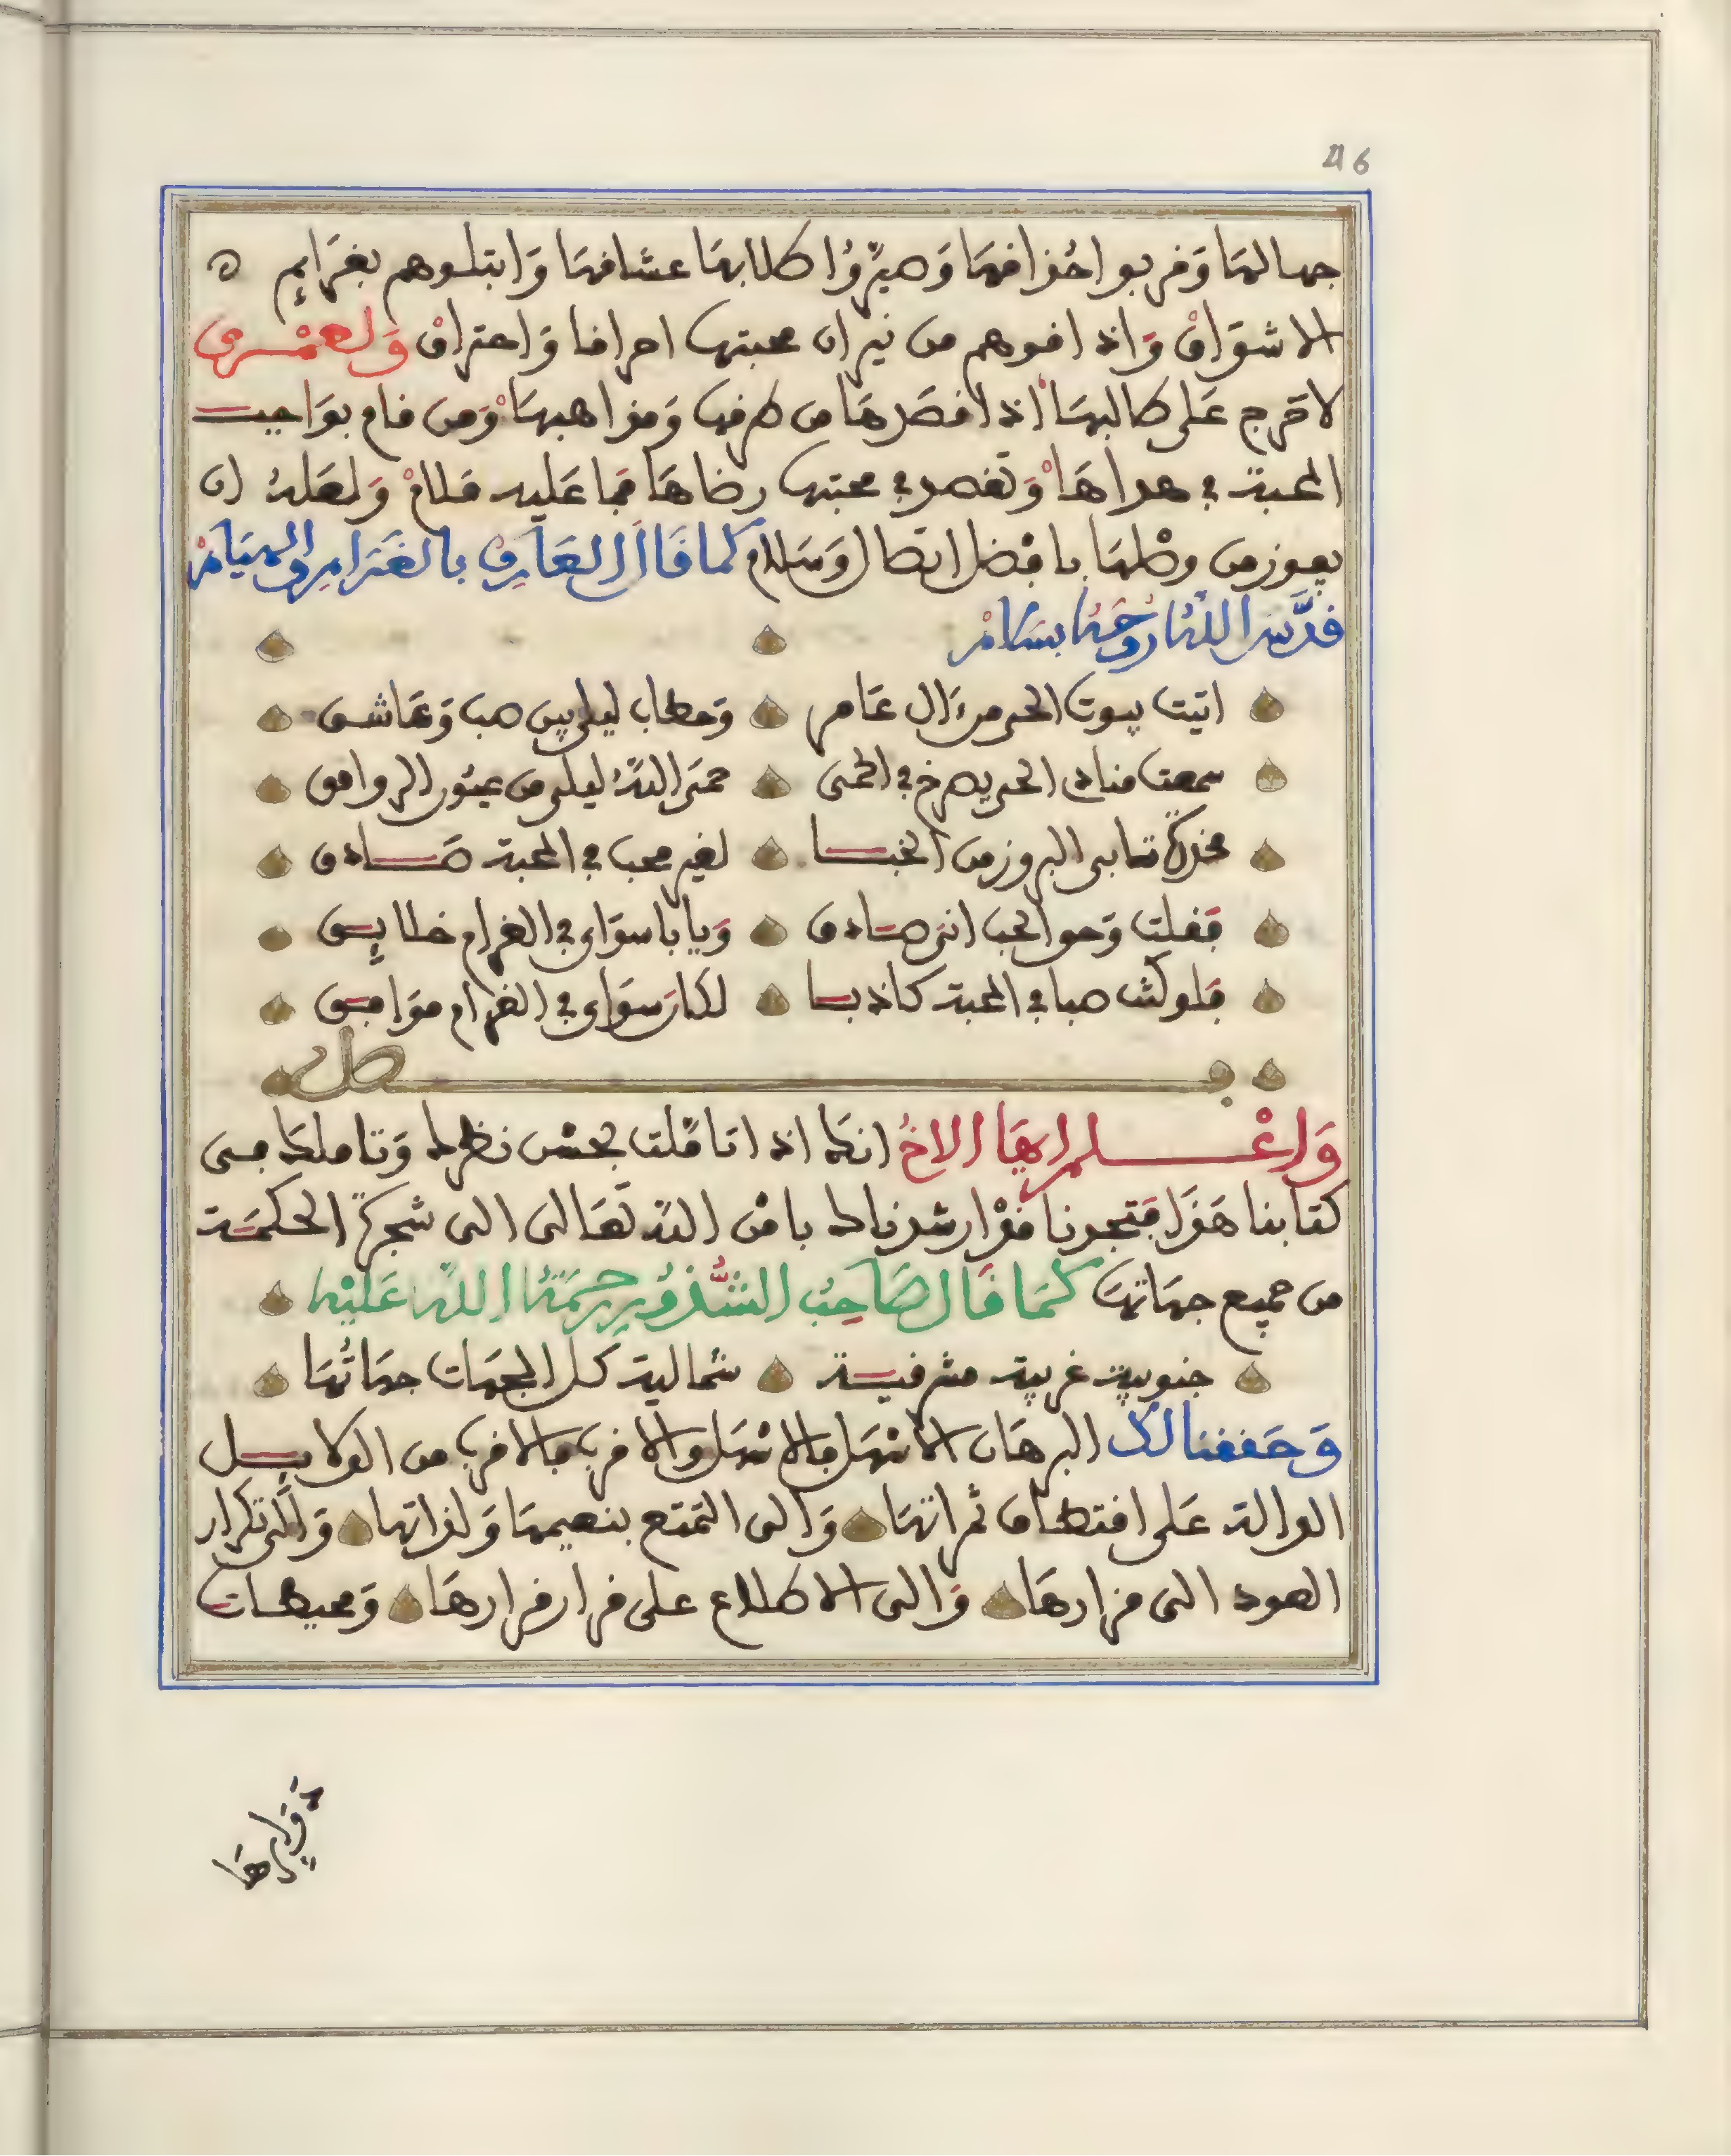 46
جمالها وقربوا حذاقها وصيّروا طلابها عشاقها وابتلوهم بغرايم ه
الاشواق واذاقوهم من نيران محبتها احراقا واحتراق ولعمري
لا حرج على طالبها اذا قصدها من طرقها ومذاهبها ومن قام بواجب
المحبة في هواها وتقصد في محبتها رضاها فما عليه ملام ولعله ان
يفوز من وصلها بافضل اتصال وسلام كما قال العارف بالغرام والهيام
قدّس الله روحه بسلام
اتيت بيوت الحي من ءال عامر وخطاب ليلى بين صب وعاشق
سمعت مناد الحي يصرخ في الحمى حمى الله ليلى من عيون الروامق
مخدرة تابى البروز من الخبا لغير محب في المحبة صادق
فقلت وحق الحب اني صادق ويا با سواي في الغرام خلايق
فلو كنت صبا في المحبة كاذبا لكان سواي في الغرام موافق
فصل
واعلم ايها الاخ انك اذا تاملت بحسن نظرك وتاملك في
كتابنا هذا فتجدنا قد ارشدناك باذن الله تعالى الى شجرة الحكمة
من جميع جهاتها كما قال صاحب الشذور رحمة الله عليه
جنوبية غربية مشرقية شمالية كل الجهات جهاتها
وحققنا لك البرهان الاسهل فالاسهل والاقرب فالاقرب من الدلايل
الدالة على اقتطاف ثمراتها والى التمتع بنعيمها ولذاتها والى تكرار
العود الى مزارها والى الاطلاع على قرار قرارها ومحيطات
دوايرها